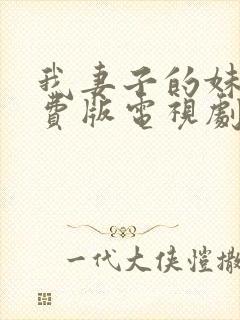 我妻子的妹
費版電視劇
一代大俠愷撒